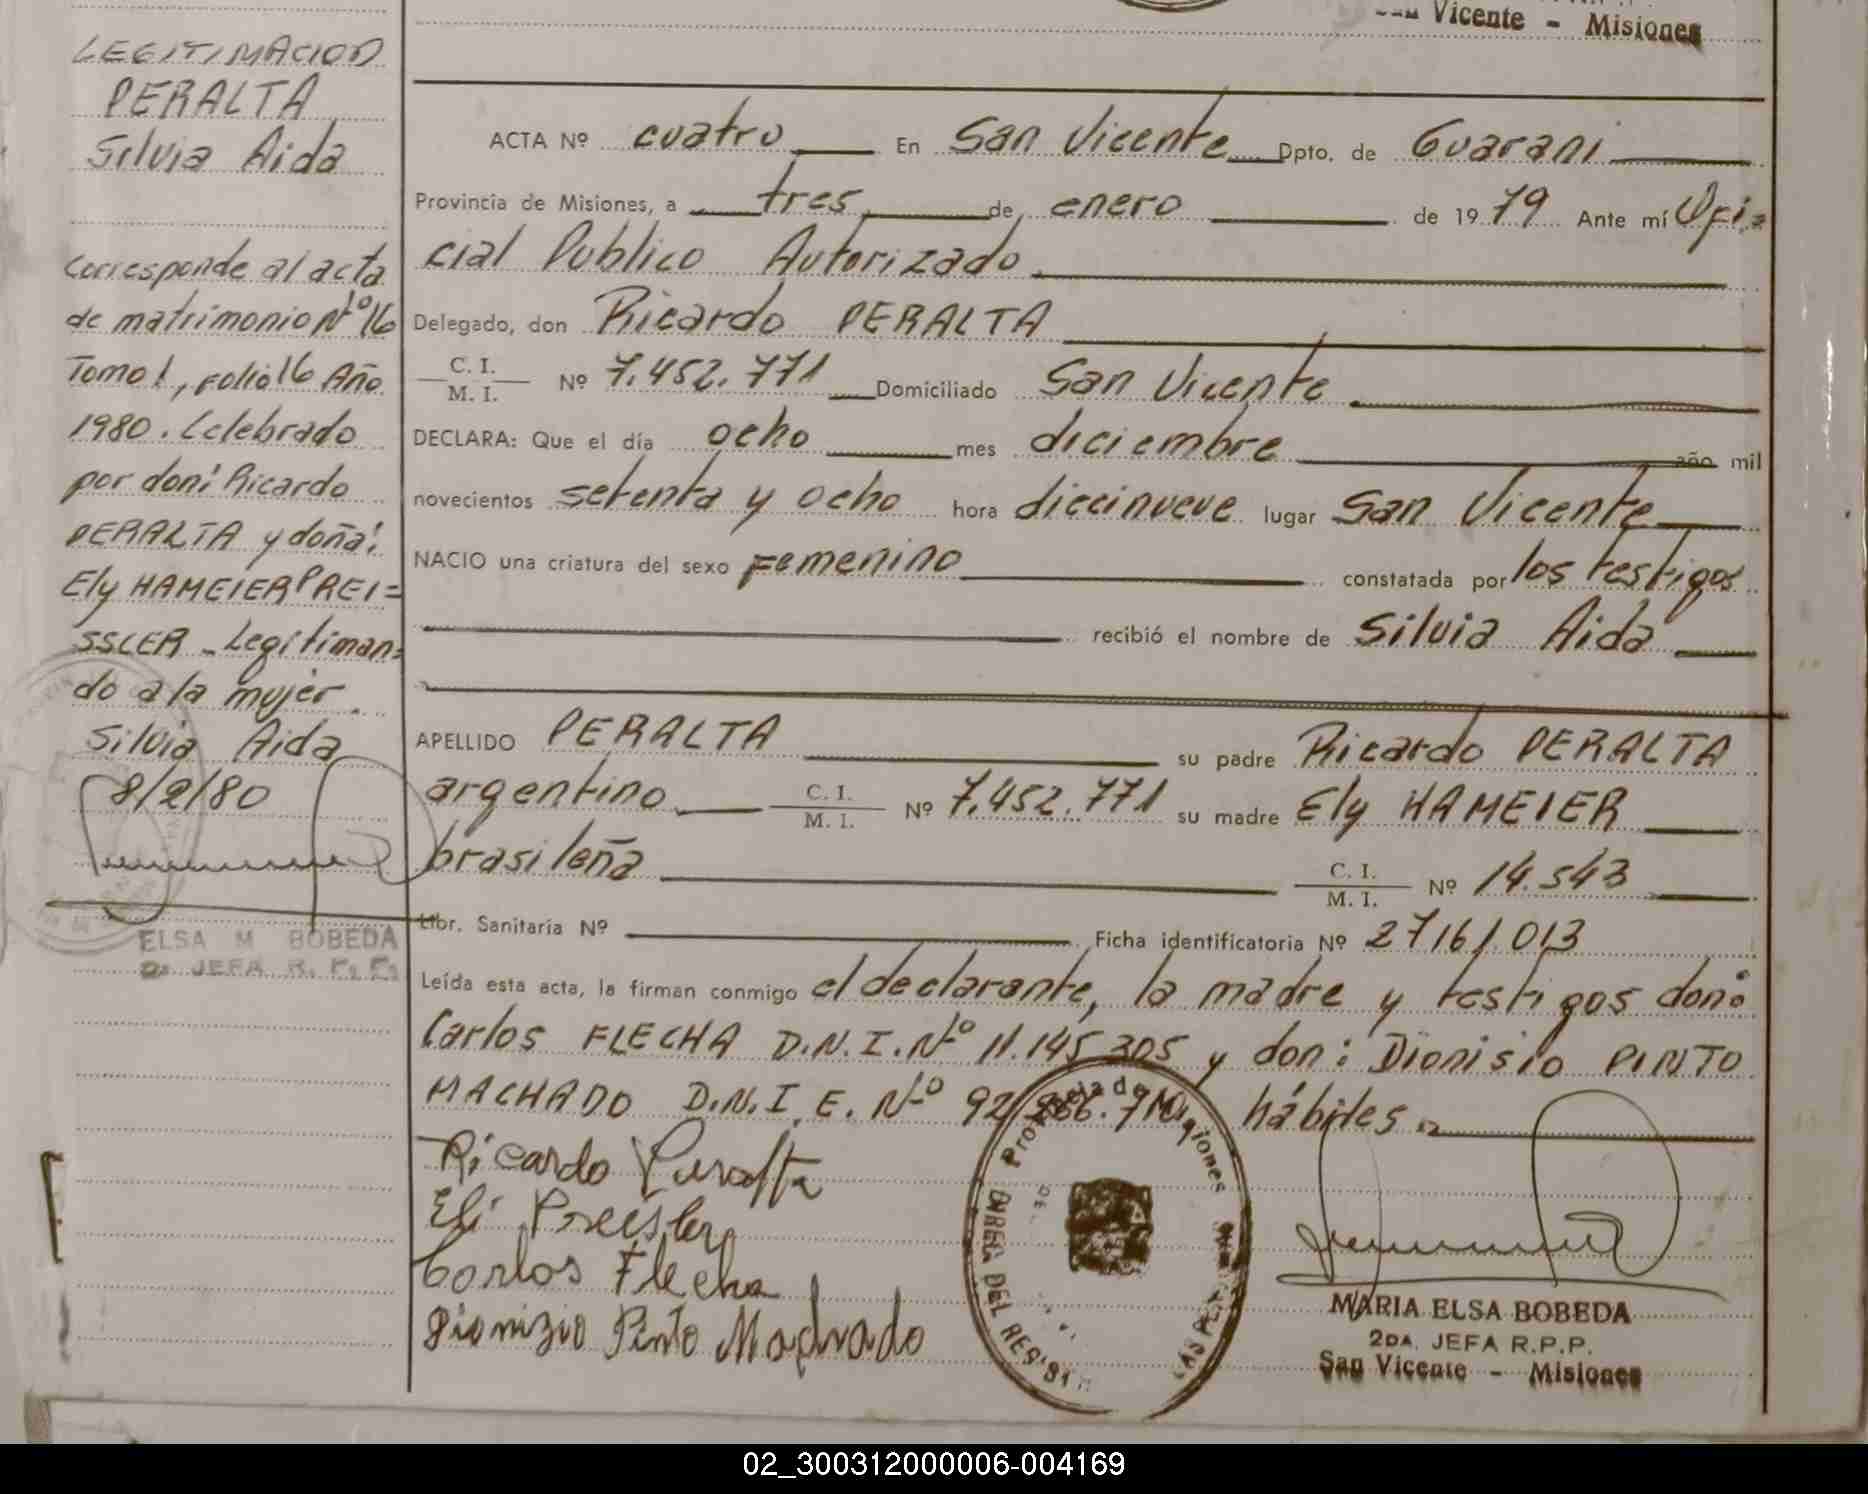 San Vicente - Misiones
LEGITIMACION
PERALTA
Silvia Aida
Corresponde al acta
de matrimonio Nº 16
Tomo 1, folio 16 Año
1980. Celebrado
por don: Ricardo
PERALTA y doña:
Ely HAMEIER PREI=
SSLER - Legitiman=
do a la mujer.
Silvia Aida
8/2/80
ELSA M BOBEDA
2a JEFA R. P. P.
ACTA Nº cuatro En San Vicente Dpto. de Guarani
Provincia de Misiones, a tres de enero de 1979 Ante mí Ofi=
cial Publico Autorizado
Delegado, don Ricardo PERALTA
C. I.
M. I. Nº 7.452.771 Domiciliado San Vicente
DECLARA: Que el día ocho mes diciembre año mil
novecientos setenta y ocho hora diecinueve lugar San Vicente
NACIO una criatura del sexo Femenino constatada por los testigos
recibió el nombre de Silvia Aida
APELLIDO PERALTA su padre Ricardo PERALTA
argentino C. I.
M. I. Nº 7.452.771 su madre Ely HAMEIER
brasileña C. I.
M. I. Nº 14.543
Libr. Sanitaria Nº Ficha identificatoria Nº 27161.013
Leída esta acta, la firman conmigo el declarante, la madre y testigos don:
Carlos FLECHA D.N.I. Nº 11.145.305 y don: Dionisio PINTO
MACHADO D.N.I.E. Nº 92 hábiles.
Ricardo Peralta
Eli Preissler
Carlos Flecha
Dionizio Pinto Machado
Provincia de Misiones
DIREC. DEL REGIST
LAS PER
MARIA ELSA BOBEDA
2DA. JEFA R.P.P.
San Vicente - Misiones
02_300312000006-004169